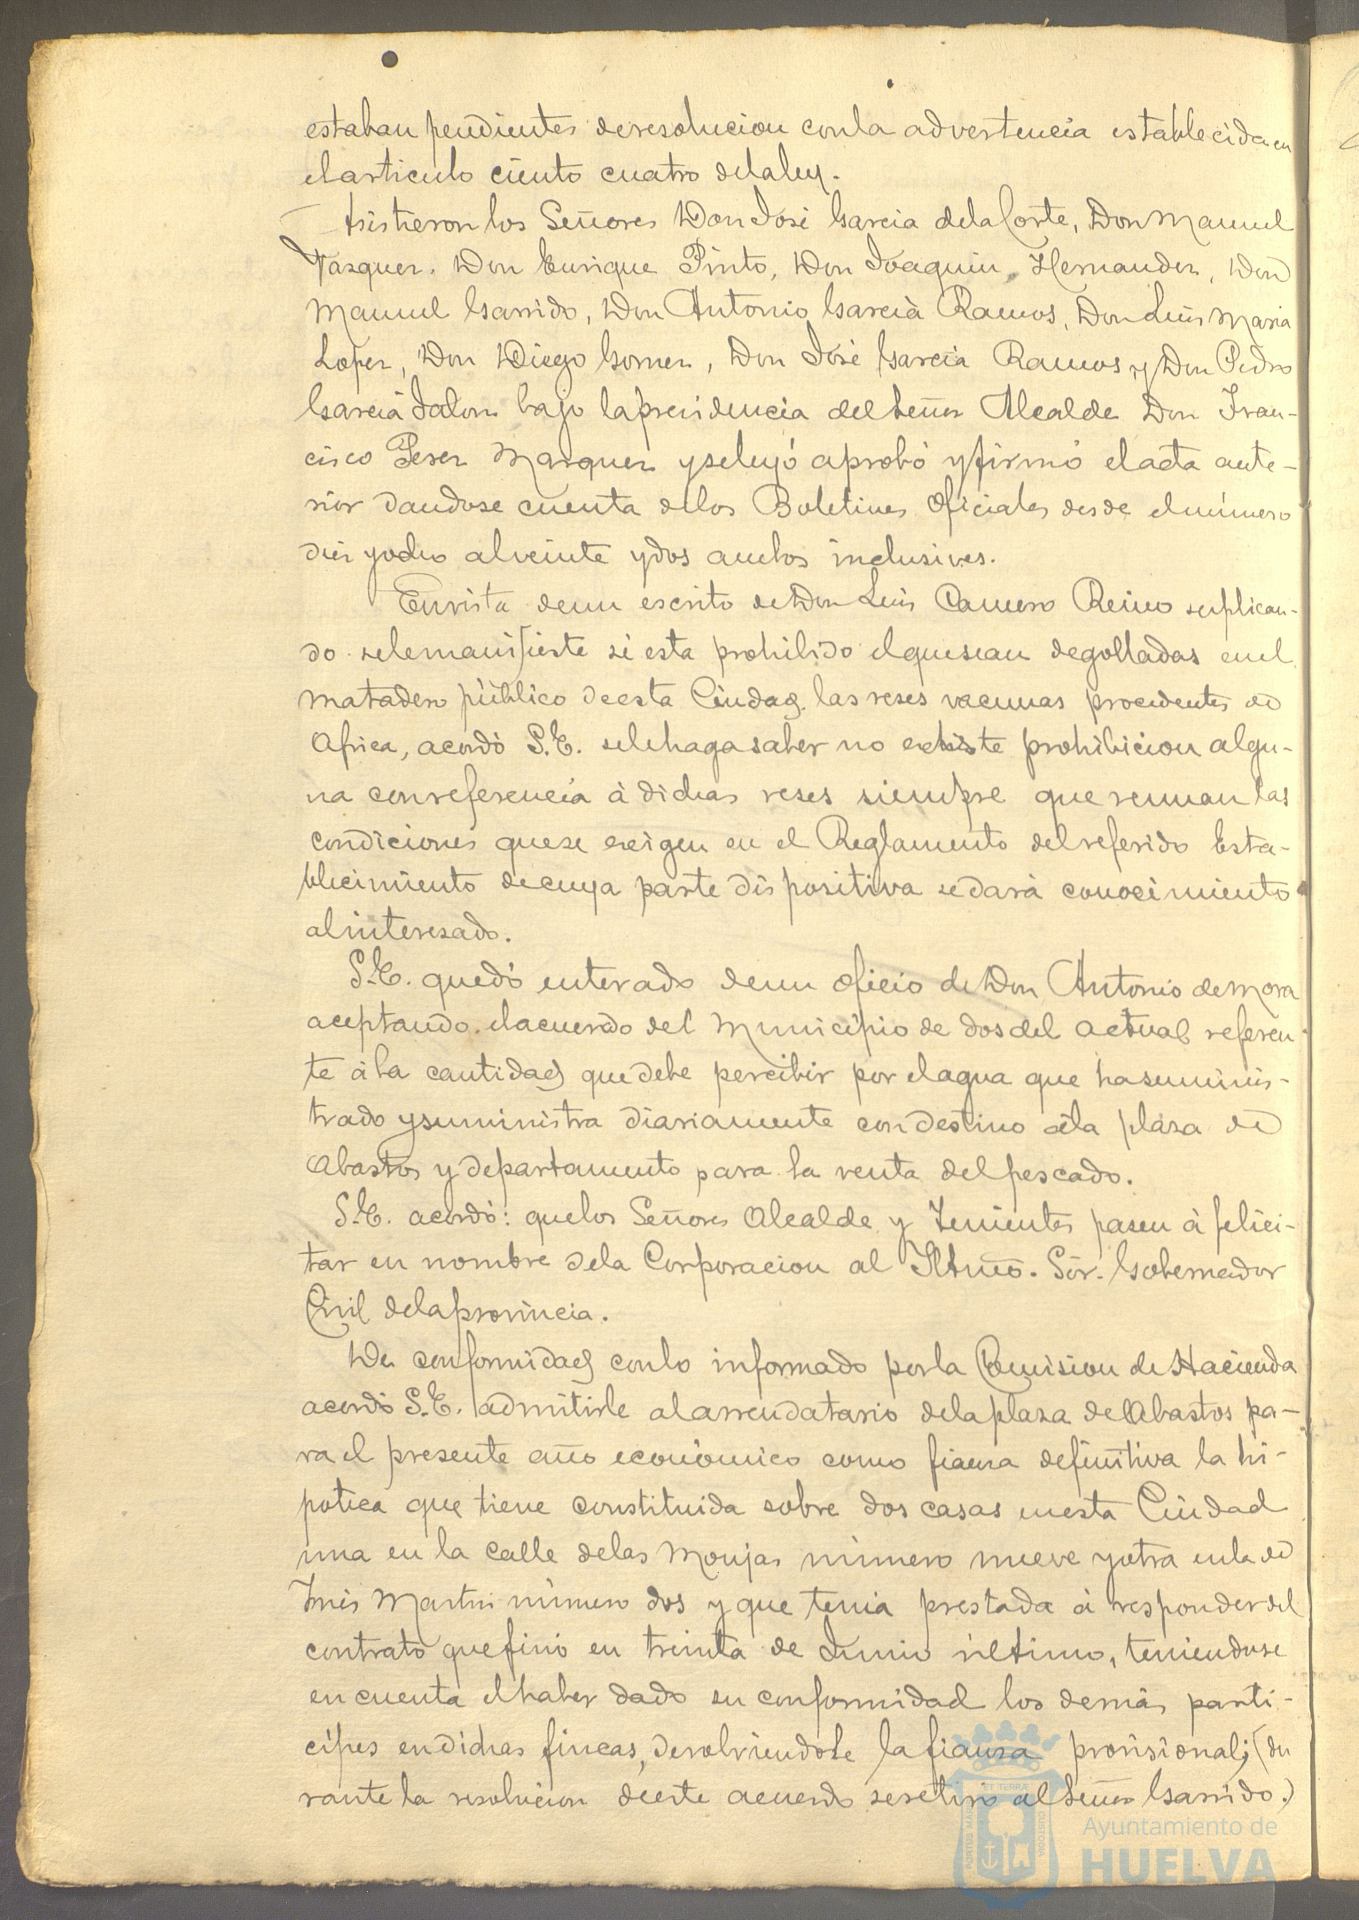 estaban pendientes de resolucion con la advertencia establecida en
el articulo ciento cuatro de la ley.
Asistieron los Señores Don José Garcia de la Corte, Don Manuel
Vazquez, Don Enrique Pinto, Don Joaquin Hernandez, Don
Manuel Garrido, Don Antonio Garcia Ramos, Don Luis Maria
Lopez, Don Diego Gomez, Don José Garcia Ramos y Don Pedro
Garcia Jalon bajo la presidencia del Señor Alcalde Don Fran-
cisco Perez Marquez y se leyó aprobó y firmó el acta ante-
rior dandose cuenta de los Boletines Oficiales desde el número
diez y ocho al veinte y dos ambos inclusives.
En vista de un escrito de Don Luis Camero Reino suplican-
do se le manifieste si esta prohibido el que sean degolladas en el
matadero público de esta Ciudad las reses vacunas procedentes de
Africa, acordó S.E. se le haga saber no existe prohibicion algu-
na con referencia à dichas reses siempre que reunan las
condiciones que se exigen en el Reglamento del referido Esta-
blecimiento de cuya parte dispositiva se dará conocimiento
al interesado.
S.E. quedó enterado de un oficio de Don Antonio de Mora
aceptando el acuerdo del Municipio de dos del actual referen-
te à la cantidad que debe percibir por el agua que ha suminis-
trado y suministra diariamente con destino à la plaza de
Abastos y departamento para la venta del pescado.
S.E. acordó: que los Señores Alcalde y Tenientes pasen à felici-
tar en nombre de la Corporacion al Iltmo. Sor. Gobernador
Civil de la provincia.
De conformidad con lo informado por la Comision de Hacienda
acordó S.E. admitirle al arrendatario de la plaza de Abastos pa-
ra el presente año económico como fianza definitiva la hi-
poteca que tiene constituida sobre dos casas en esta Ciudad
una en la calle de las Monjas número nueve y otra en la de
Inés Martin número dos y que tenia prestada à responder del
contrato que finó en treinta de Junio último, teniendose
en cuenta el haber dado su conformidad los demás parti-
cipes en dichas fincas, devolviendole la fianza provisional; (du
rante la resolucion de este acuerdo se retiró el Señor Garrido.)
Ayuntamiento de
HUELVA